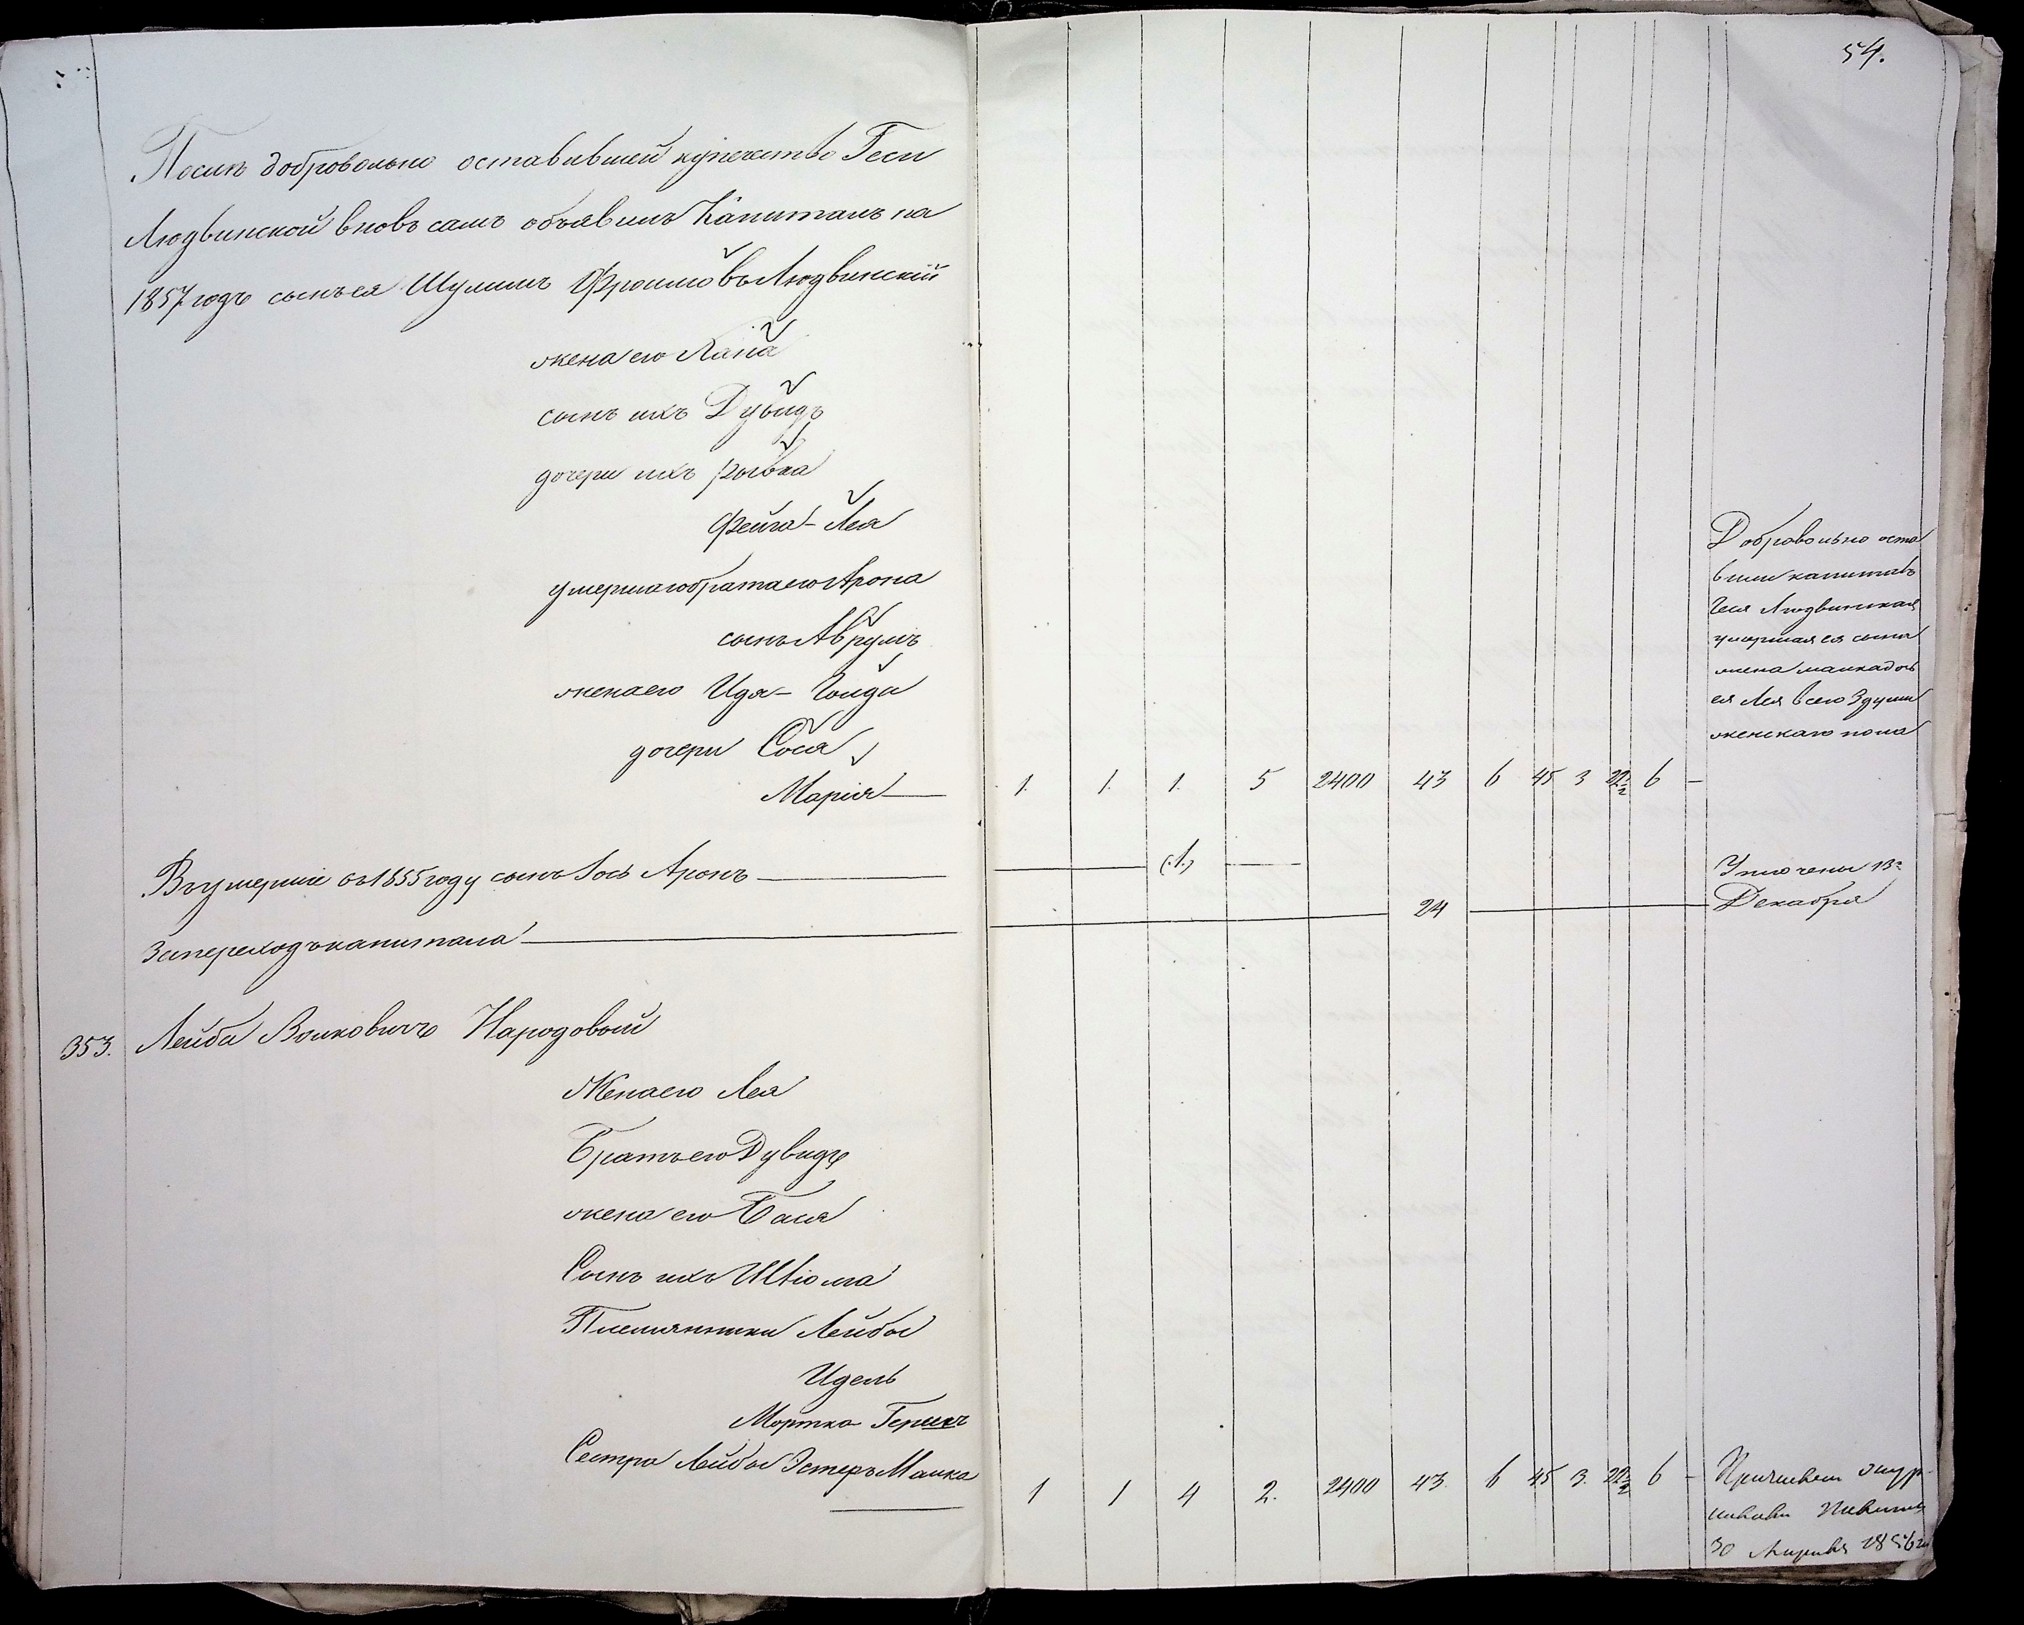 54.
Послѣ добровольно оставившей купечество Геси
Людвинской вновь самъ объявилъ Капиталъ на
1857 годъ сынъ ея Шулимъ Фроимовъ Людвинскій
жена его Хана
сынъ ихъ Дувидъ
дочери ихъ Рывка
Фейга-Лея
умершаго брата его Арона
сынъ Аврумъ
жена его Идя-
дочери Сося
Марія
1. 1. 1. 5 2400 43 6 45 3 22½ 6 –
Добровольно оста
вили капиталъ
Геся Людвинская
умершая ея сына
жена Малка дочь
ея Лея всего 3 души
женскаго пола
въ 1855 году сынъ Іось Аронъ (1.)
За переходъ капитала 24
Декабря
353. Лейба Волковичъ Народовый
Жена его Лея
Братъ его Дувидъ
жена его Бася
Сынъ ихъ Шліома
Племянники Лейбы
Идель
Мортко Гершъ
Сестра Лейбы Эстеръ Малка
1 1 4 2. 2400 43. 6 45 3. 22½ 6 –
30